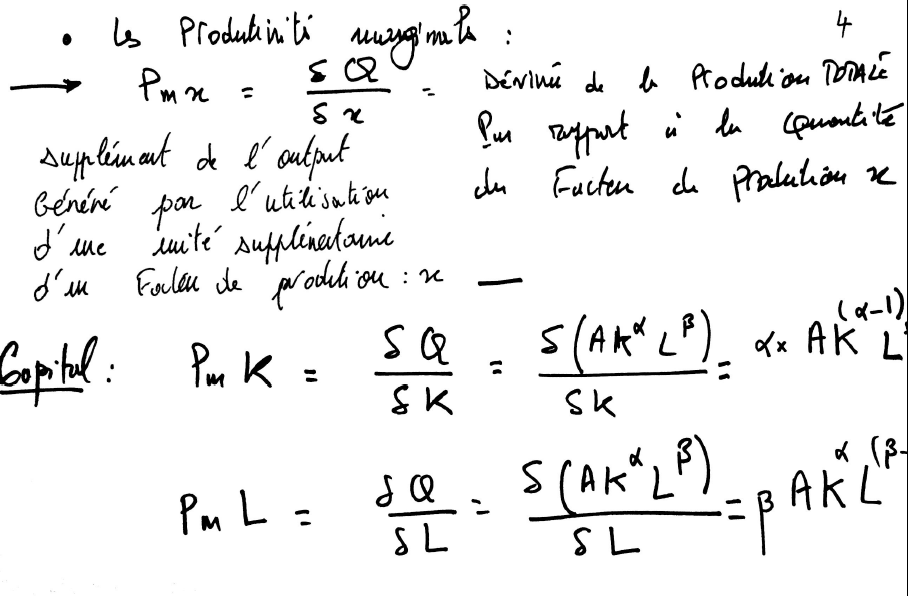 4
• Les Productivité marginale :
→ Pmx = δQ/δx = Dérivée de la Production TOTALE
Par rapport à la Quantité
du Facteur de production x
supplément de l'output
Généré par l'utilisation
d'une unité supplémentaire
d'un Facteur de production : x —
Capital : PmK = δQ/δK = δ(AK^α L^β)/δK = α× AK^(α-1) L
PmL = δQ/δL = δ(AK^α L^β)/δL = β AK^α L^(β-